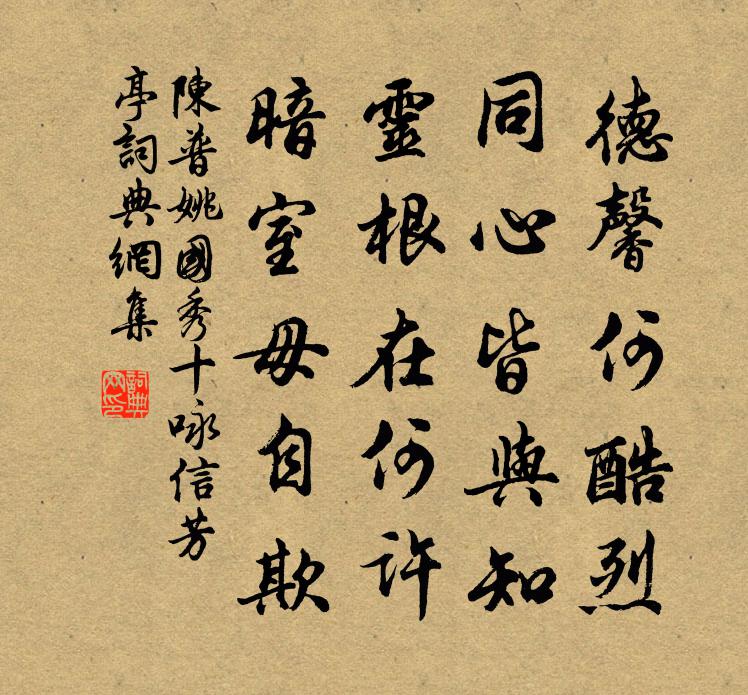 德馨何酷烈
同心皆與知
靈根在何許
暗室毋自欺
陳普姚國秀十咏信芳
亭詞典網集
詞典網印